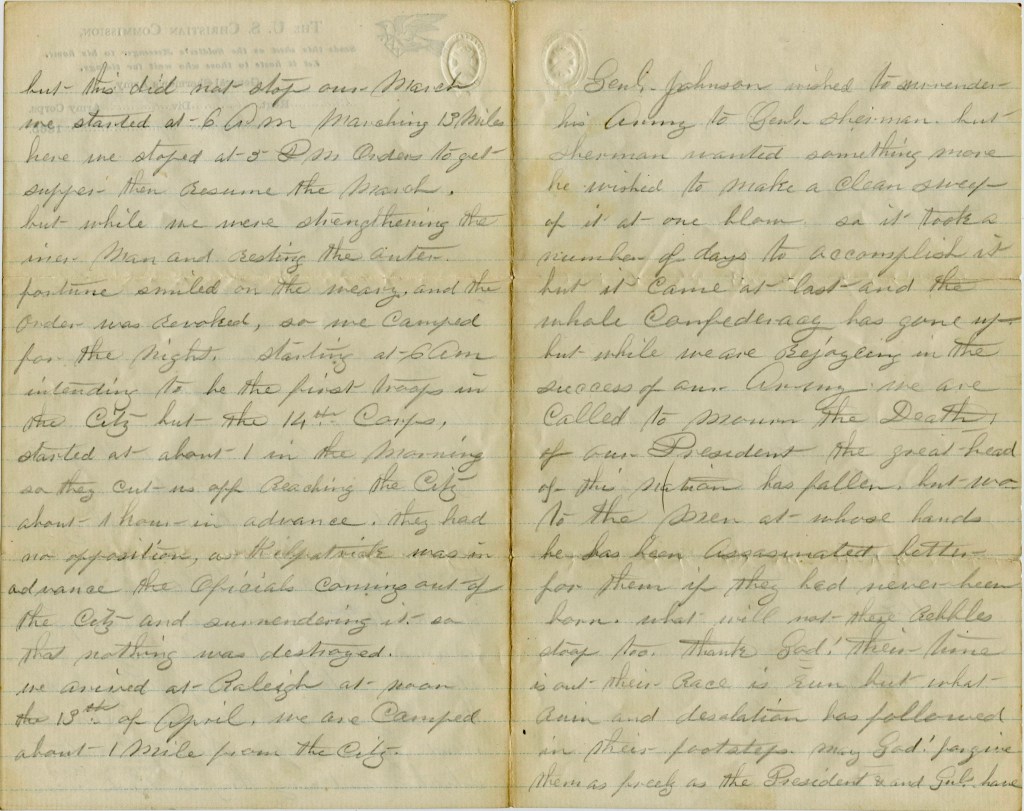 but this did not stop our March
we started at 6 A m Marching 13 Miles
here we stoped at 5 P M Orders to get
supper then resume the March.
but while we were strengthening the
iner Man and resting the outer.
fortune smiled on the weary, and the
Order was revoked, so we Camped
for the Night. starting at 6 Am
intending to be the first troops in
the City but the 14th Corps,
started at about 1 in the Morning
so they cut us off reaching the City
about 1 hour in advance. they had
no opposition, as Kilpatrick was in
advance the Oficials coming out of
the City and surrendering it so
that nothing was destroyed.
we arived at Raleigh at noon
the 13th of April. we are Camped
about 1 Mile from the City.
Genl. Johnson wished to surrender
his Army to Genl. Sherman. but
Sherman wanted something more
he wished to make a Clean sweep
of it at one blow so it took a
number of days to accomplish it
but it Came at last and the
whole Confederacy has gone up
but while we are Rejoyceing in the
success of our Army we are
Called to mourn the Death,
of our President the great head
of this Nation has fallen. but wo
to the Men at whose hands
he has been Assasinated better
for them if they had never been
born. what will not these Rebbles
stoop too. thank God! their time
is out their Race is Run but what
Ruin and desolation has followed
in their footsteps. may God! forgive
them as freely as the President & and Genls. have
THE U. S. CHRISTIAN COMMISSION,